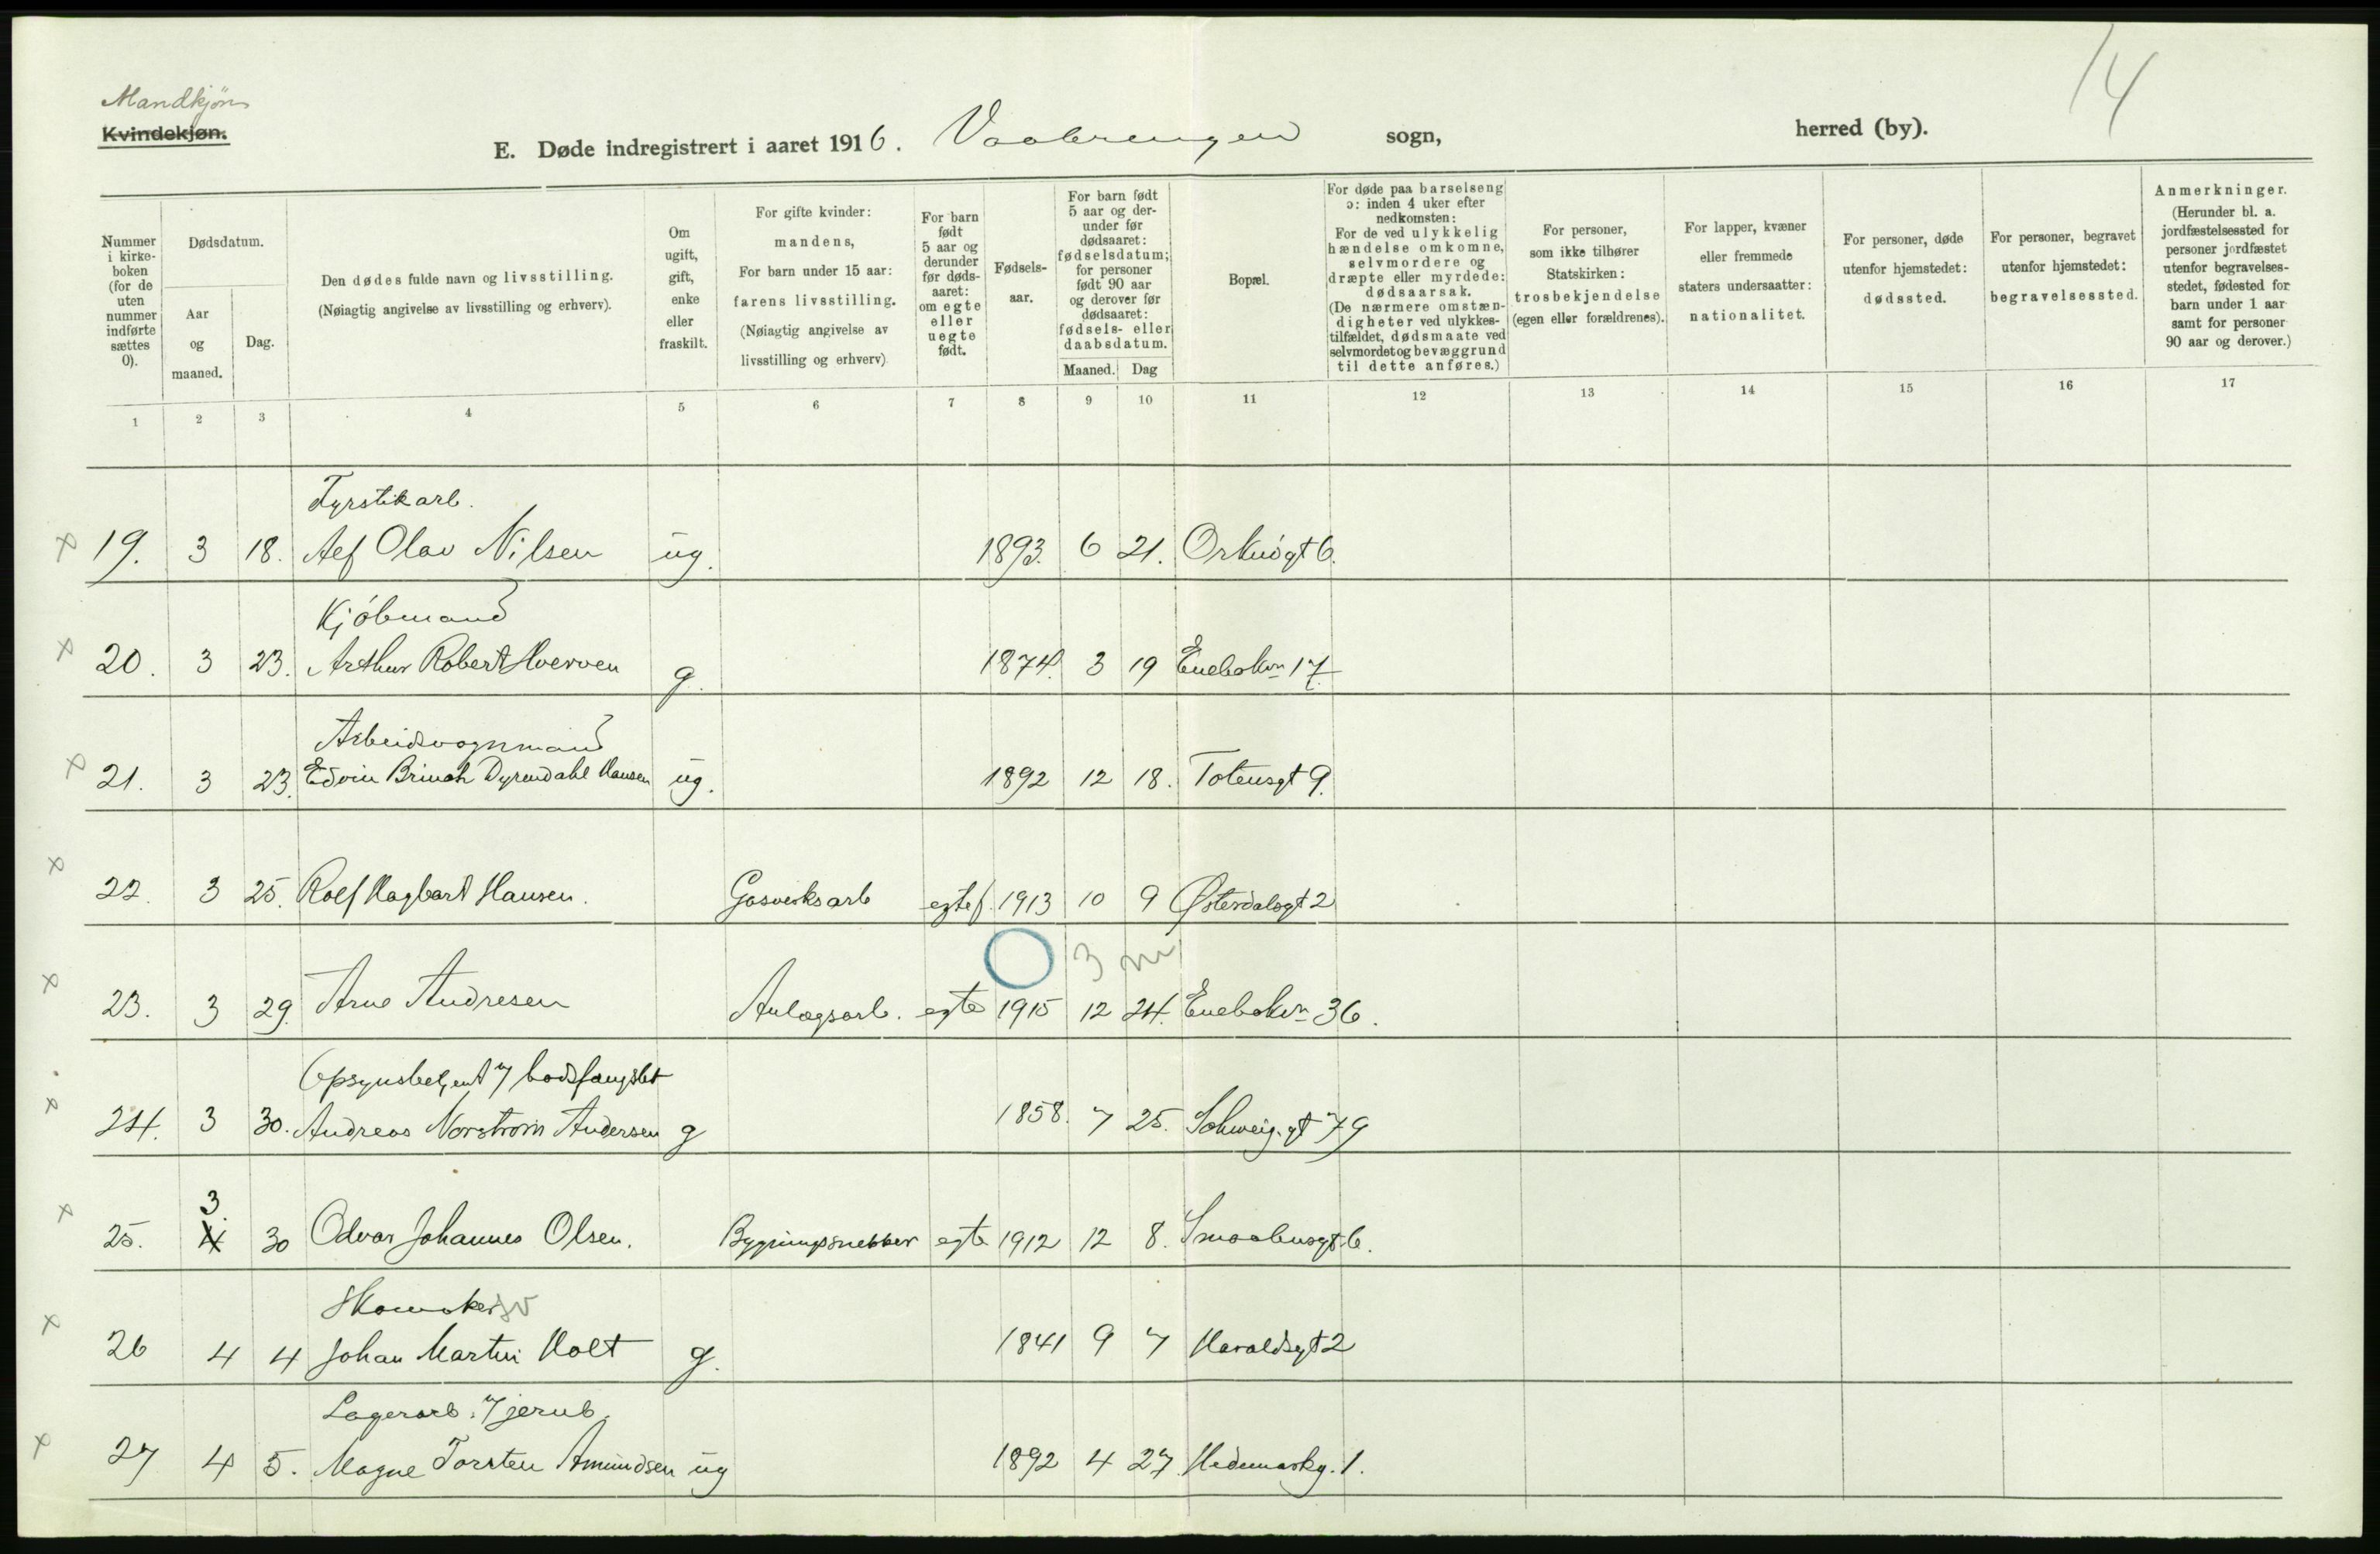 14
Mandkjøn
Kvindekjøn.
E. Døde indregistrert i aaret 1916. Vaalerengen sogn, herred (by).
Nummer i kirkeboken (for de uten nummer indførte sættes 0).
Dødsdatum.
Aar og maaned.
Dag.
Den dødes fulde navn og livsstilling.
(Nøiagtig angivelse av livsstilling og erhverv).
Om ugift, gift, enke eller fraskilt.
For gifte kvinder: mandens,
For barn under 15 aar: farens livsstilling.
(Nøiagtig angivelse av livsstilling og erhverv)
For barn født 5 aar og derunder før dødsaaret: om egte eller uegte født.
Fødselsaar.
For barn født 5 aar og derunder før dødsaaret: fødselsdatum; for personer født 90 aar og derover før dødsaaret: fødsels- eller daabsdatum.
Maaned. Dag
Bopæl.
For døde paa barselseng ɔ: inden 4 uker efter nedkomsten:
For de ved ulykkelig hændelse omkomne, selvmordere og dræpte eller myrdede: dødsaarsak.
(De nærmere omstændigheter ved ulykkestilfældet, dødsmaate ved selvmordet og bevæggrund til dette anføres.)
For personer, som ikke tilhører Statskirken: trosbekjendelse (egen eller forældrenes).
For lapper, kvæner eller fremmede staters undersaatter: nationalitet.
For personer, døde utenfor hjemstedet: dødssted.
For personer, begravet utenfor hjemstedet: begravelsessted.
Anmerkninger.
(Herunder bl. a. jordfæstelsessted for personer jordfæstet utenfor begravelsesstedet, fødested for barn under 1 aar samt for personer 90 aar og derover.)
1 2 3 4 5 6 7 8 9 10 11 12 13 14 15 16 17
Fyrstikarb.
x 19. 3 18. Alf Olav Nilsen ug. 1893. 6 21. Orknøgt 6.
Kjøbmand
x 20. 3 23. Arthur Robert Hverven g. 1874. 3 19 Enebakv. 17
Arbeidsvognmand
x 21. 3 23. Edvin Brinch Dyrendahl Hansen ug. 1892 12 18. Totensgt 9.
x 22. 3 25. Rolf Hagbart Hansen. Gasverksarb egte f. 1913 10 9 Østerdalsgt 2
3 m
x 23. 3 29. Arne Andresen Anlægsarb. egte 1915 12 24. Enebakv. 36.
Opsynsbetjent v/ bodsfængslet
x 24. 3 30. Andreas Norstrøm Andersen g 1858. 7 25. Schweig.gt 79
3.
x 25. 4 30 Odvar Johannes Olsen. Bygningssnekker egte 1912 12 8. Smaalensgt 6.
Skomaker sv
x 26 4 4 Johan Martin Holt g. 1841 9 7 Haraldsgt 2
Lagerarb. v/ jernb.
x 27 4 5. Magne Torsten Amundsen ug 1892 4 27. Hedemarkg. 1.